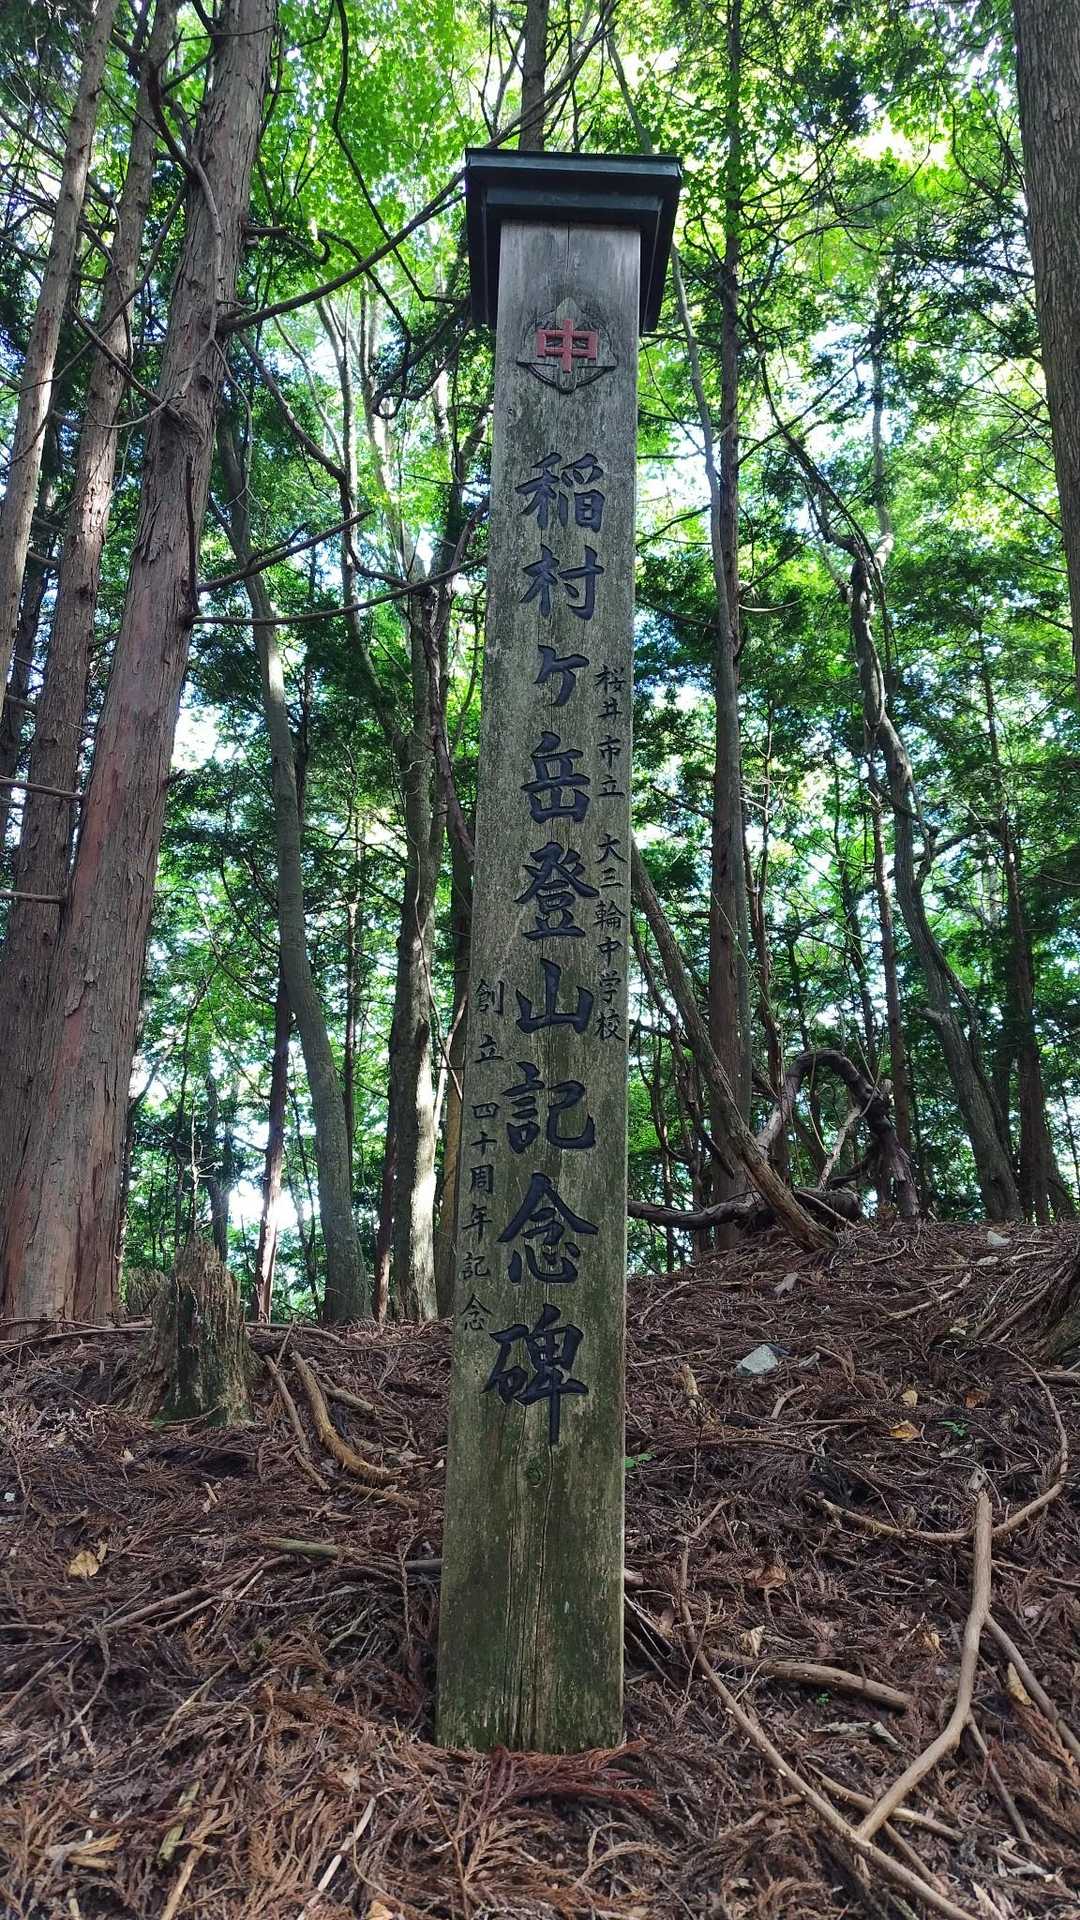 中
桜井市立 大三輪中学校
稲村ケ岳登山記念碑
創立 四十周年記念